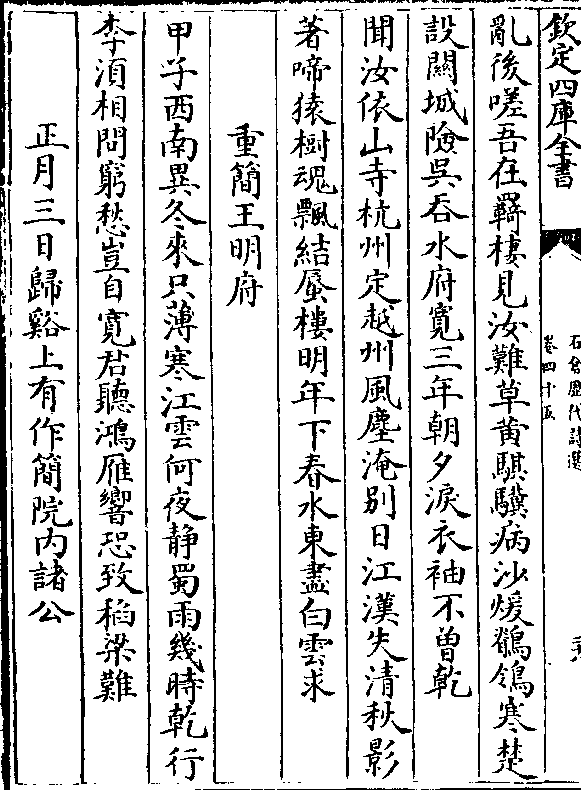 欽定四庫全書
石倉歴代詩選
卷四十五
亂後嗟吾在羈棲見汝難草黄騏驥病沙煖鶺鴒寒楚
設闗城險吳吞水府寛三年朝夕淚衣袖不曽乾
聞汝依山寺杭州定越州風塵淹别日江漢失清秋影
著啼猿樹魂飄結蜃樓明年下春水東盡白雲求
重簡王明府
甲子西南異冬來只薄寒江雲何夜静蜀雨幾時乾行
李湏相問窮愁豈自寛君聽鴻雁響恐致稻粱難
正月三日歸谿上有作簡院内諸公